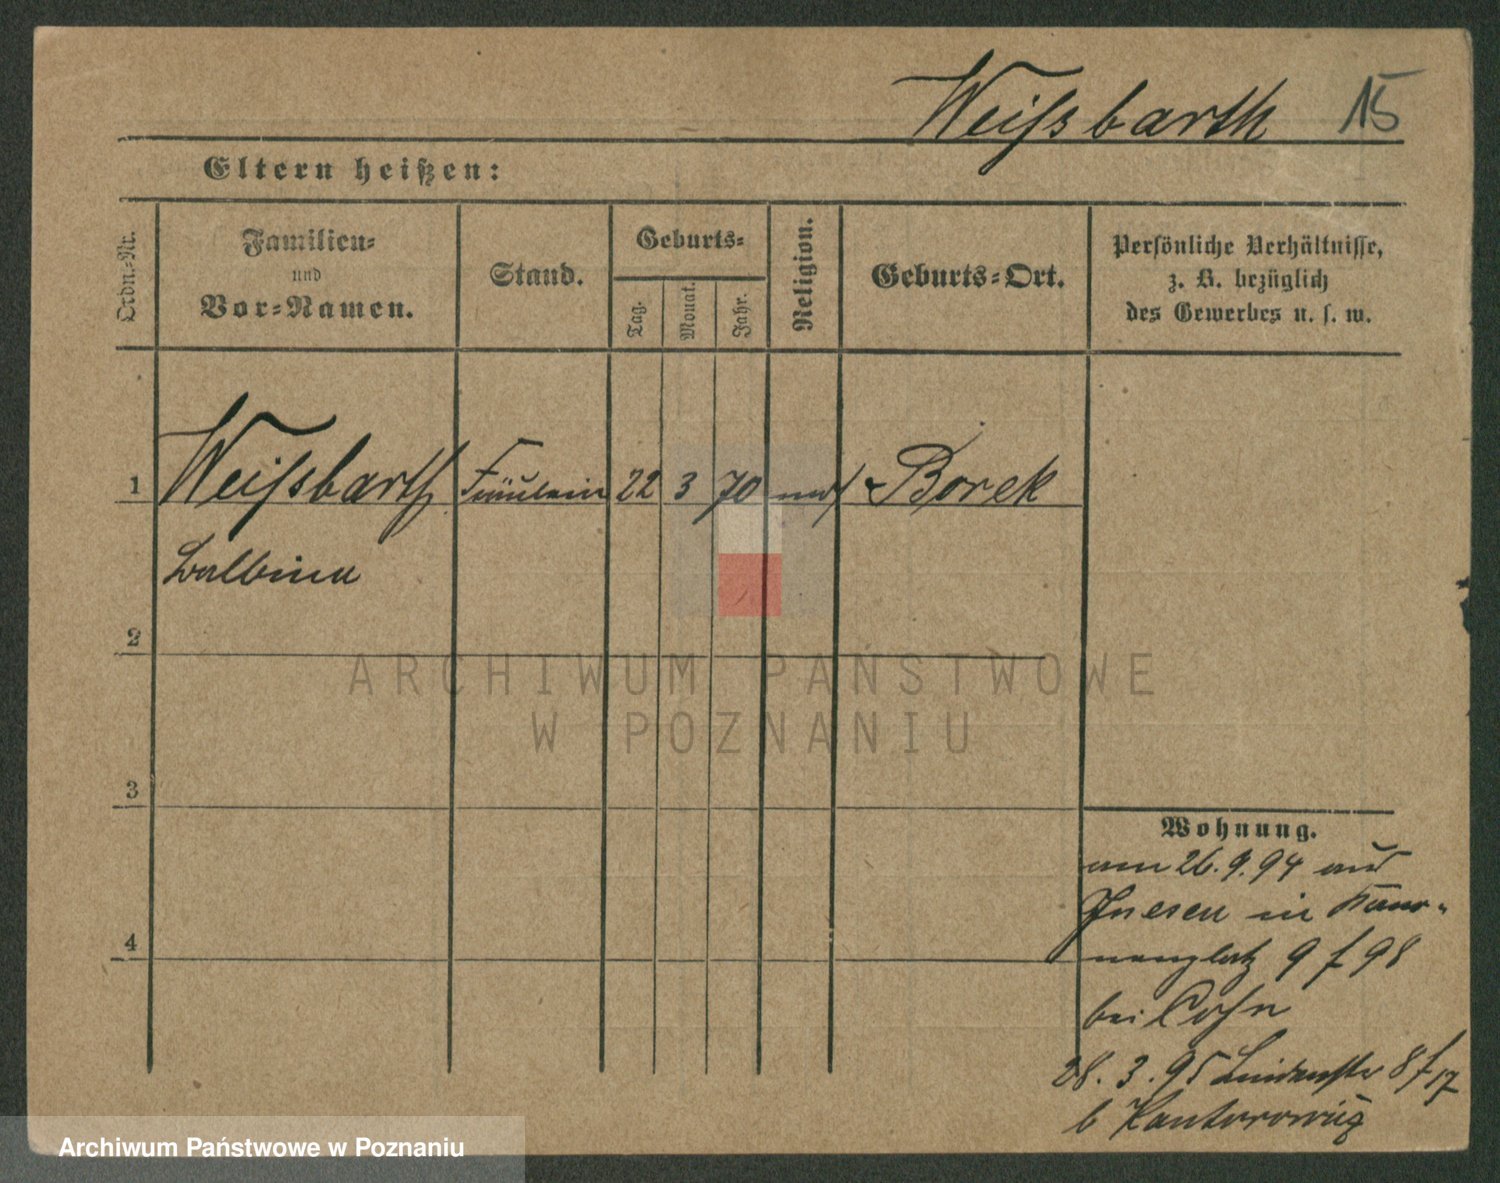 Weißbarth 15
Eltern heißen:
Ordn.-Nr.
Familien-
und
Vor-Namen.
Stand.
Geburts-
Tag.
Monat.
Jahr.
Religion.
Geburts-Ort.
Persönliche Verhältnisse,
z. B. bezüglich
des Gewerbes u. s. w.
1 Weißbarth Fräulein 22 3 70 Borek
Balbina
2
3
4
Wohnung.
am 26.9.94 aus
Gnesen in
9 98
bei Cohn
28.3.95 Lindenstr 8 17
b Kantorowicz
ARCHIWUM PAŃSTWOWE
W POZNANIU
Archiwum Państwowe w Poznaniu